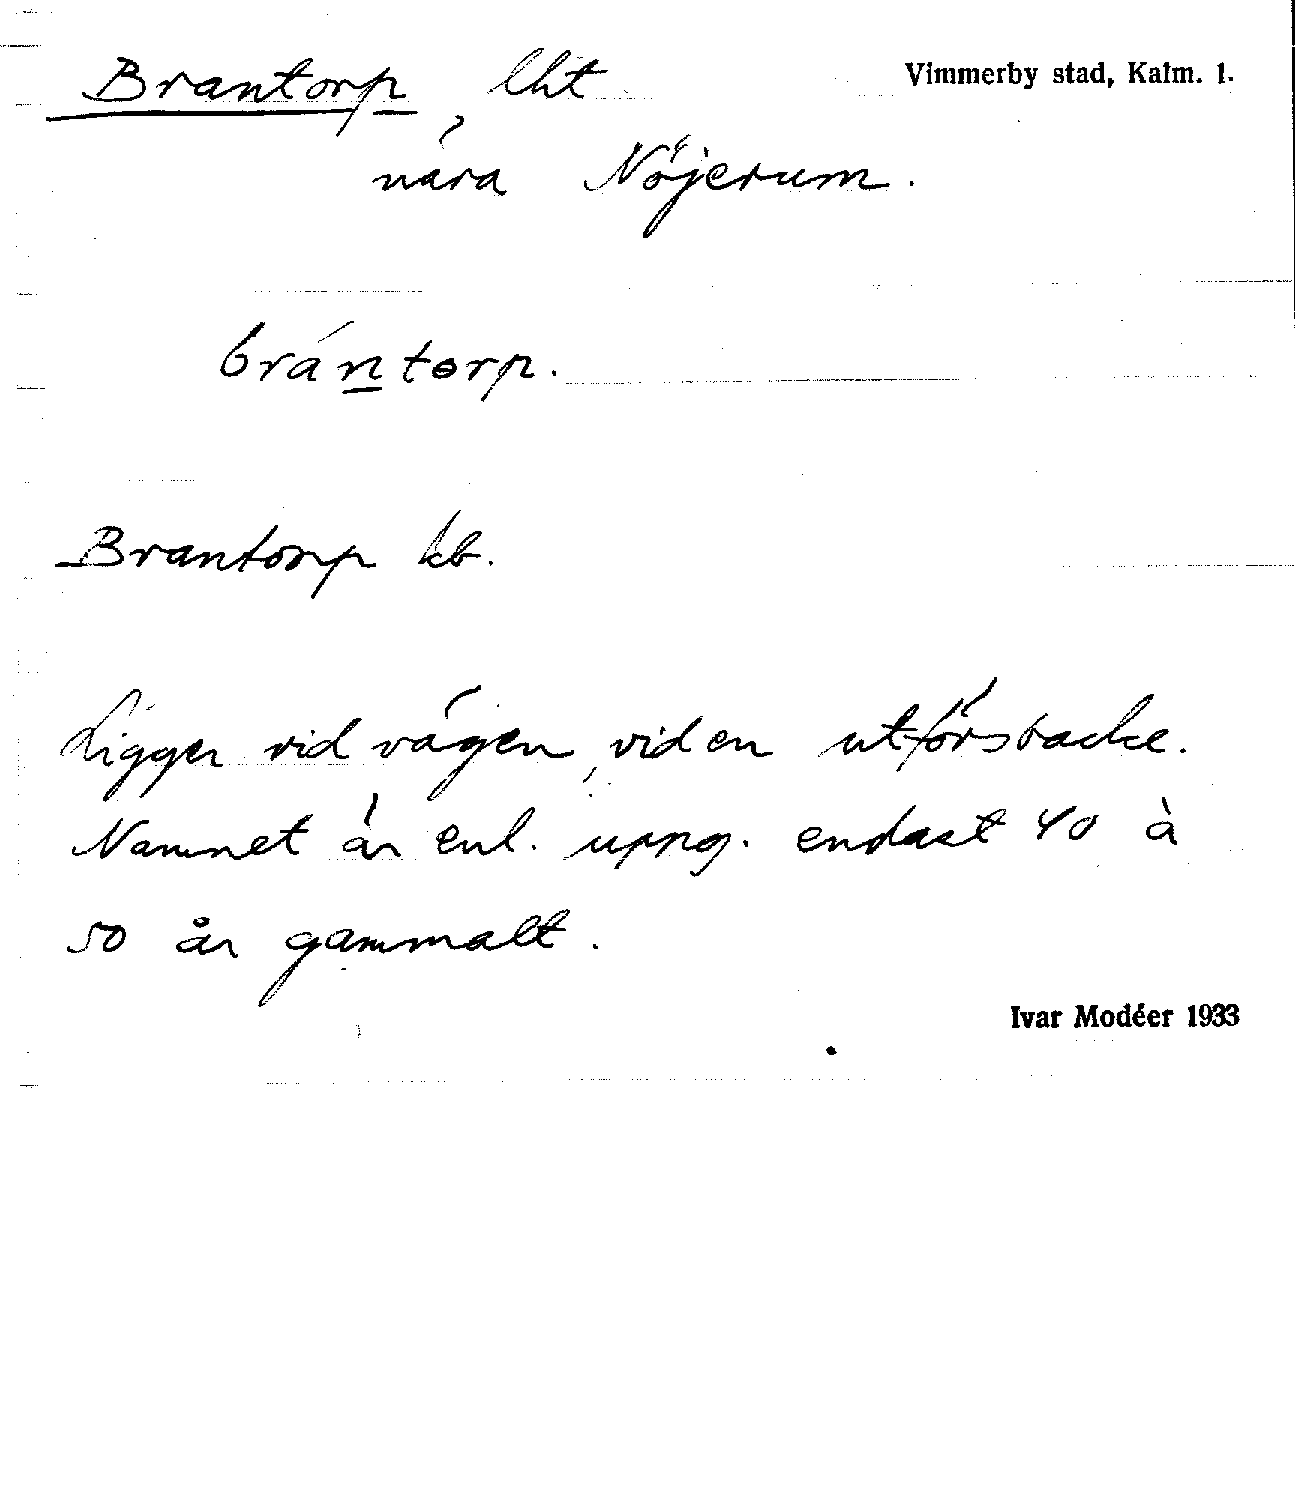 Brantorp, lht Vimmerby stad, Kalm. l.
nära Nöjerum.
brántorp.
Brantorp kb.
Ligger vid vägen, vid en utförsbacke.
Namnet är enl. uppg. endast 40 à
50 år gammalt.
Ivar Modéer 1933